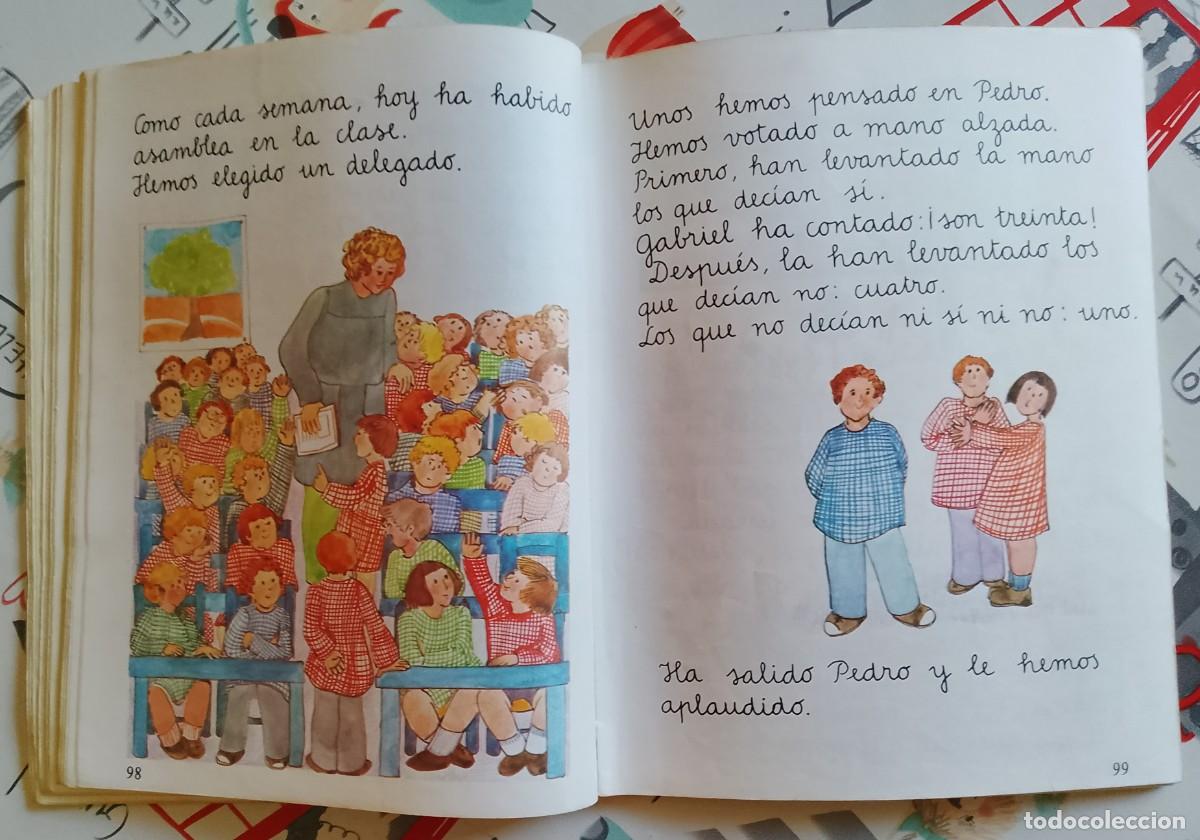 Como cada semana, hoy ha habido
asamblea en la clase.
Hemos elegido un delegado.
98
Unos hemos pensado en Pedro.
Hemos votado a mano alzada.
Primero, han levantado la mano
los que decían sí.
Gabriel ha contado: ¡son treinta!
Después, la han levantado los
que decían no: cuatro.
Los que no decían ni sí ni no: uno.
Ha salido Pedro y le hemos
aplaudido.
99
todocoleccion